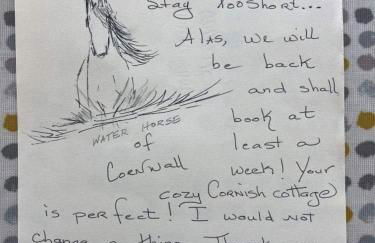 Stay too Short...
Alas, we will
be back
and shall
WATER HORSE
book at
of
least a
Cornwall
week! Your
cozy Cornish cottage
is perfect! I would not
change a thing.